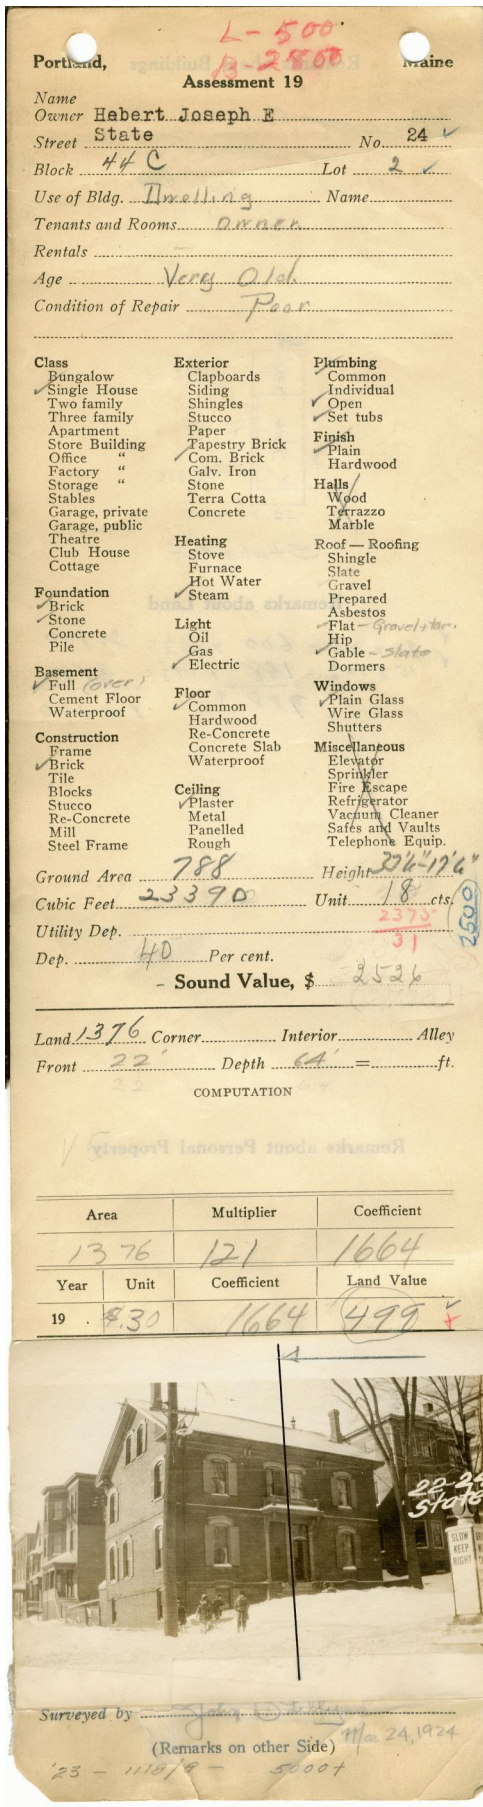 L-500
B-2500
Portland, Maine
Assessment 19
Name
Owner Hebert Joseph E
Street State No. 24 ✓
Block 44 C Lot 2 ✓
Use of Bldg. Dwelling Name
Tenants and Rooms owner
Rentals
Age Very Old
Condition of Repair Poor
Class
Bungalow
✓ Single House
Two family
Three family
Apartment
Store Building
Office "
Factory "
Storage "
Stables
Garage, private
Garage, public
Theatre
Club House
Cottage
Foundation
✓ Brick
✓ Stone
Concrete
Pile
Basement
✓ Full (over)
Cement Floor
Waterproof
Construction
Frame
✓ Brick
Tile
Blocks
Stucco
Re-Concrete
Mill
Steel Frame
Exterior
Clapboards
Siding
Shingles
Stucco
Paper
Tapestry Brick
✓ Com. Brick
Galv. Iron
Stone
Terra Cotta
Concrete
Heating
Stove
Furnace
Hot Water
✓ Steam
Light
Oil
Gas
✓ Electric
Floor
✓ Common
Hardwood
Re-Concrete
Concrete Slab
Waterproof
Ceiling
✓ Plaster
Metal
Panelled
Rough
Plumbing
Common
Individual
✓ Open
✓ Set tubs
Finish
✓ Plain
Hardwood
Halls
Wood
Terrazzo
Marble
Roof — Roofing
Shingle
Slate
Gravel
Prepared
Asbestos
✓ Flat - Gravel + tar.
Hip
✓ Gable - slate
Dormers
Windows
✓ Plain Glass
Wire Glass
Shutters
Miscellaneous
Elevator
Sprinkler
Fire Escape
Refrigerator
Vacuum Cleaner
Safes and Vaults
Telephone Equip.
Ground Area 788 Height 37'6"-17'6"
Cubic Feet 23390 Unit 18 cts.
2375
2500
Utility Dep. 31
Dep. 40 Per cent.
- Sound Value, $ 2526
Land 1376 Corner Interior Alley
Front 22' Depth 64' = ft.
COMPUTATION
Area Multiplier Coefficient
1376 121 1664
Year Unit Coefficient Land Value
19 . $.30 1664 499 ✓
22-24
State
SLOW
KEEP
RIGHT
Surveyed by
Mar 24, 1924
(Remarks on other Side)
5000+